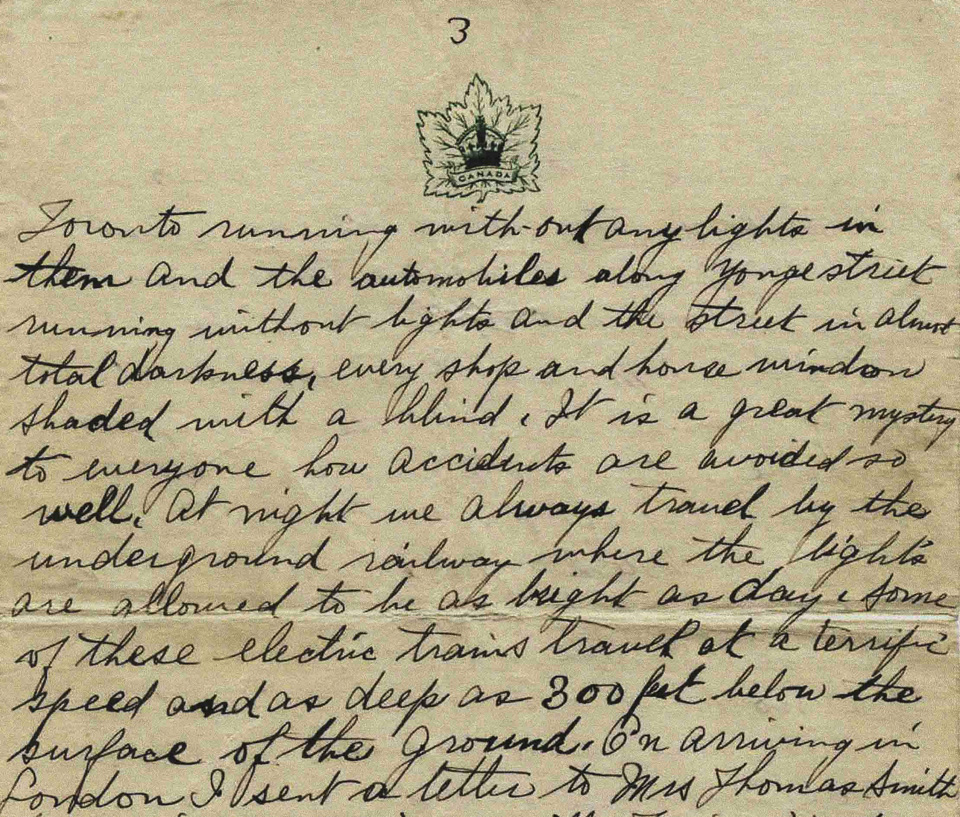 3
CANADA
Toronto running with-out any lights in
them and the automobiles along Yonge street
running without lights and the street in almost
total darkness, every shop and house window
shaded with a blind. It is a great mystery
to everyone how accidents are avoided so
well. At night we always travel by the
underground railway where the lights
are allowed to be as bright as day. Some
of these electric trains travel at a terrific
speed and as deep as 300 feet below the
surface of the ground. On arriving in
London I sent a letter to Mrs Thomas Smith